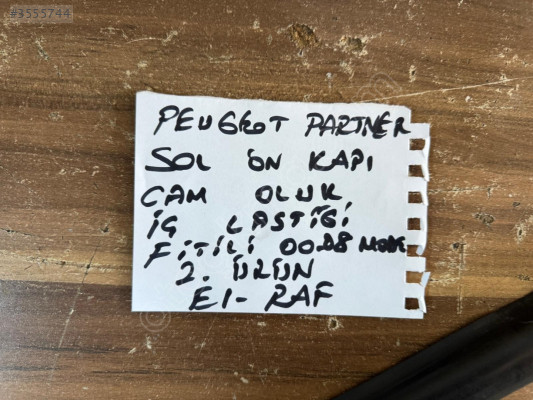 #3555744
PEUGEOT PARTNER
SOL ÖN KAPI
CAM OLUK
İÇ LASTİĞİ
FİTİLİ 00.08 MODEL
2. ÜRÜN
E1-RAF